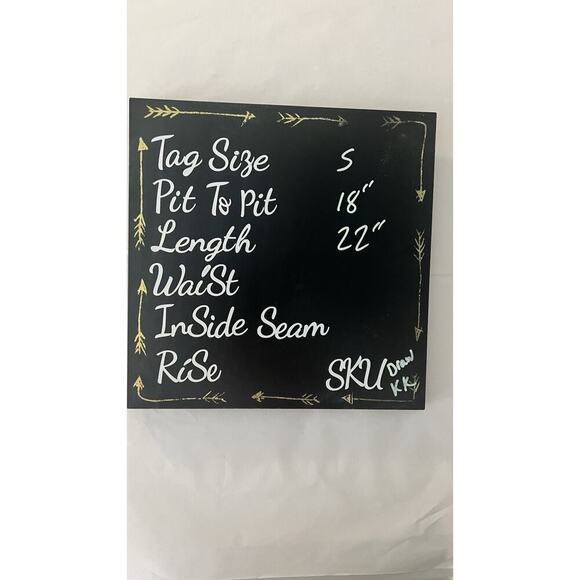 Tag Size S
Pit To Pit 18"
Length 22"
Waist
InSide Seam
RiSe
SKU Draw
KK